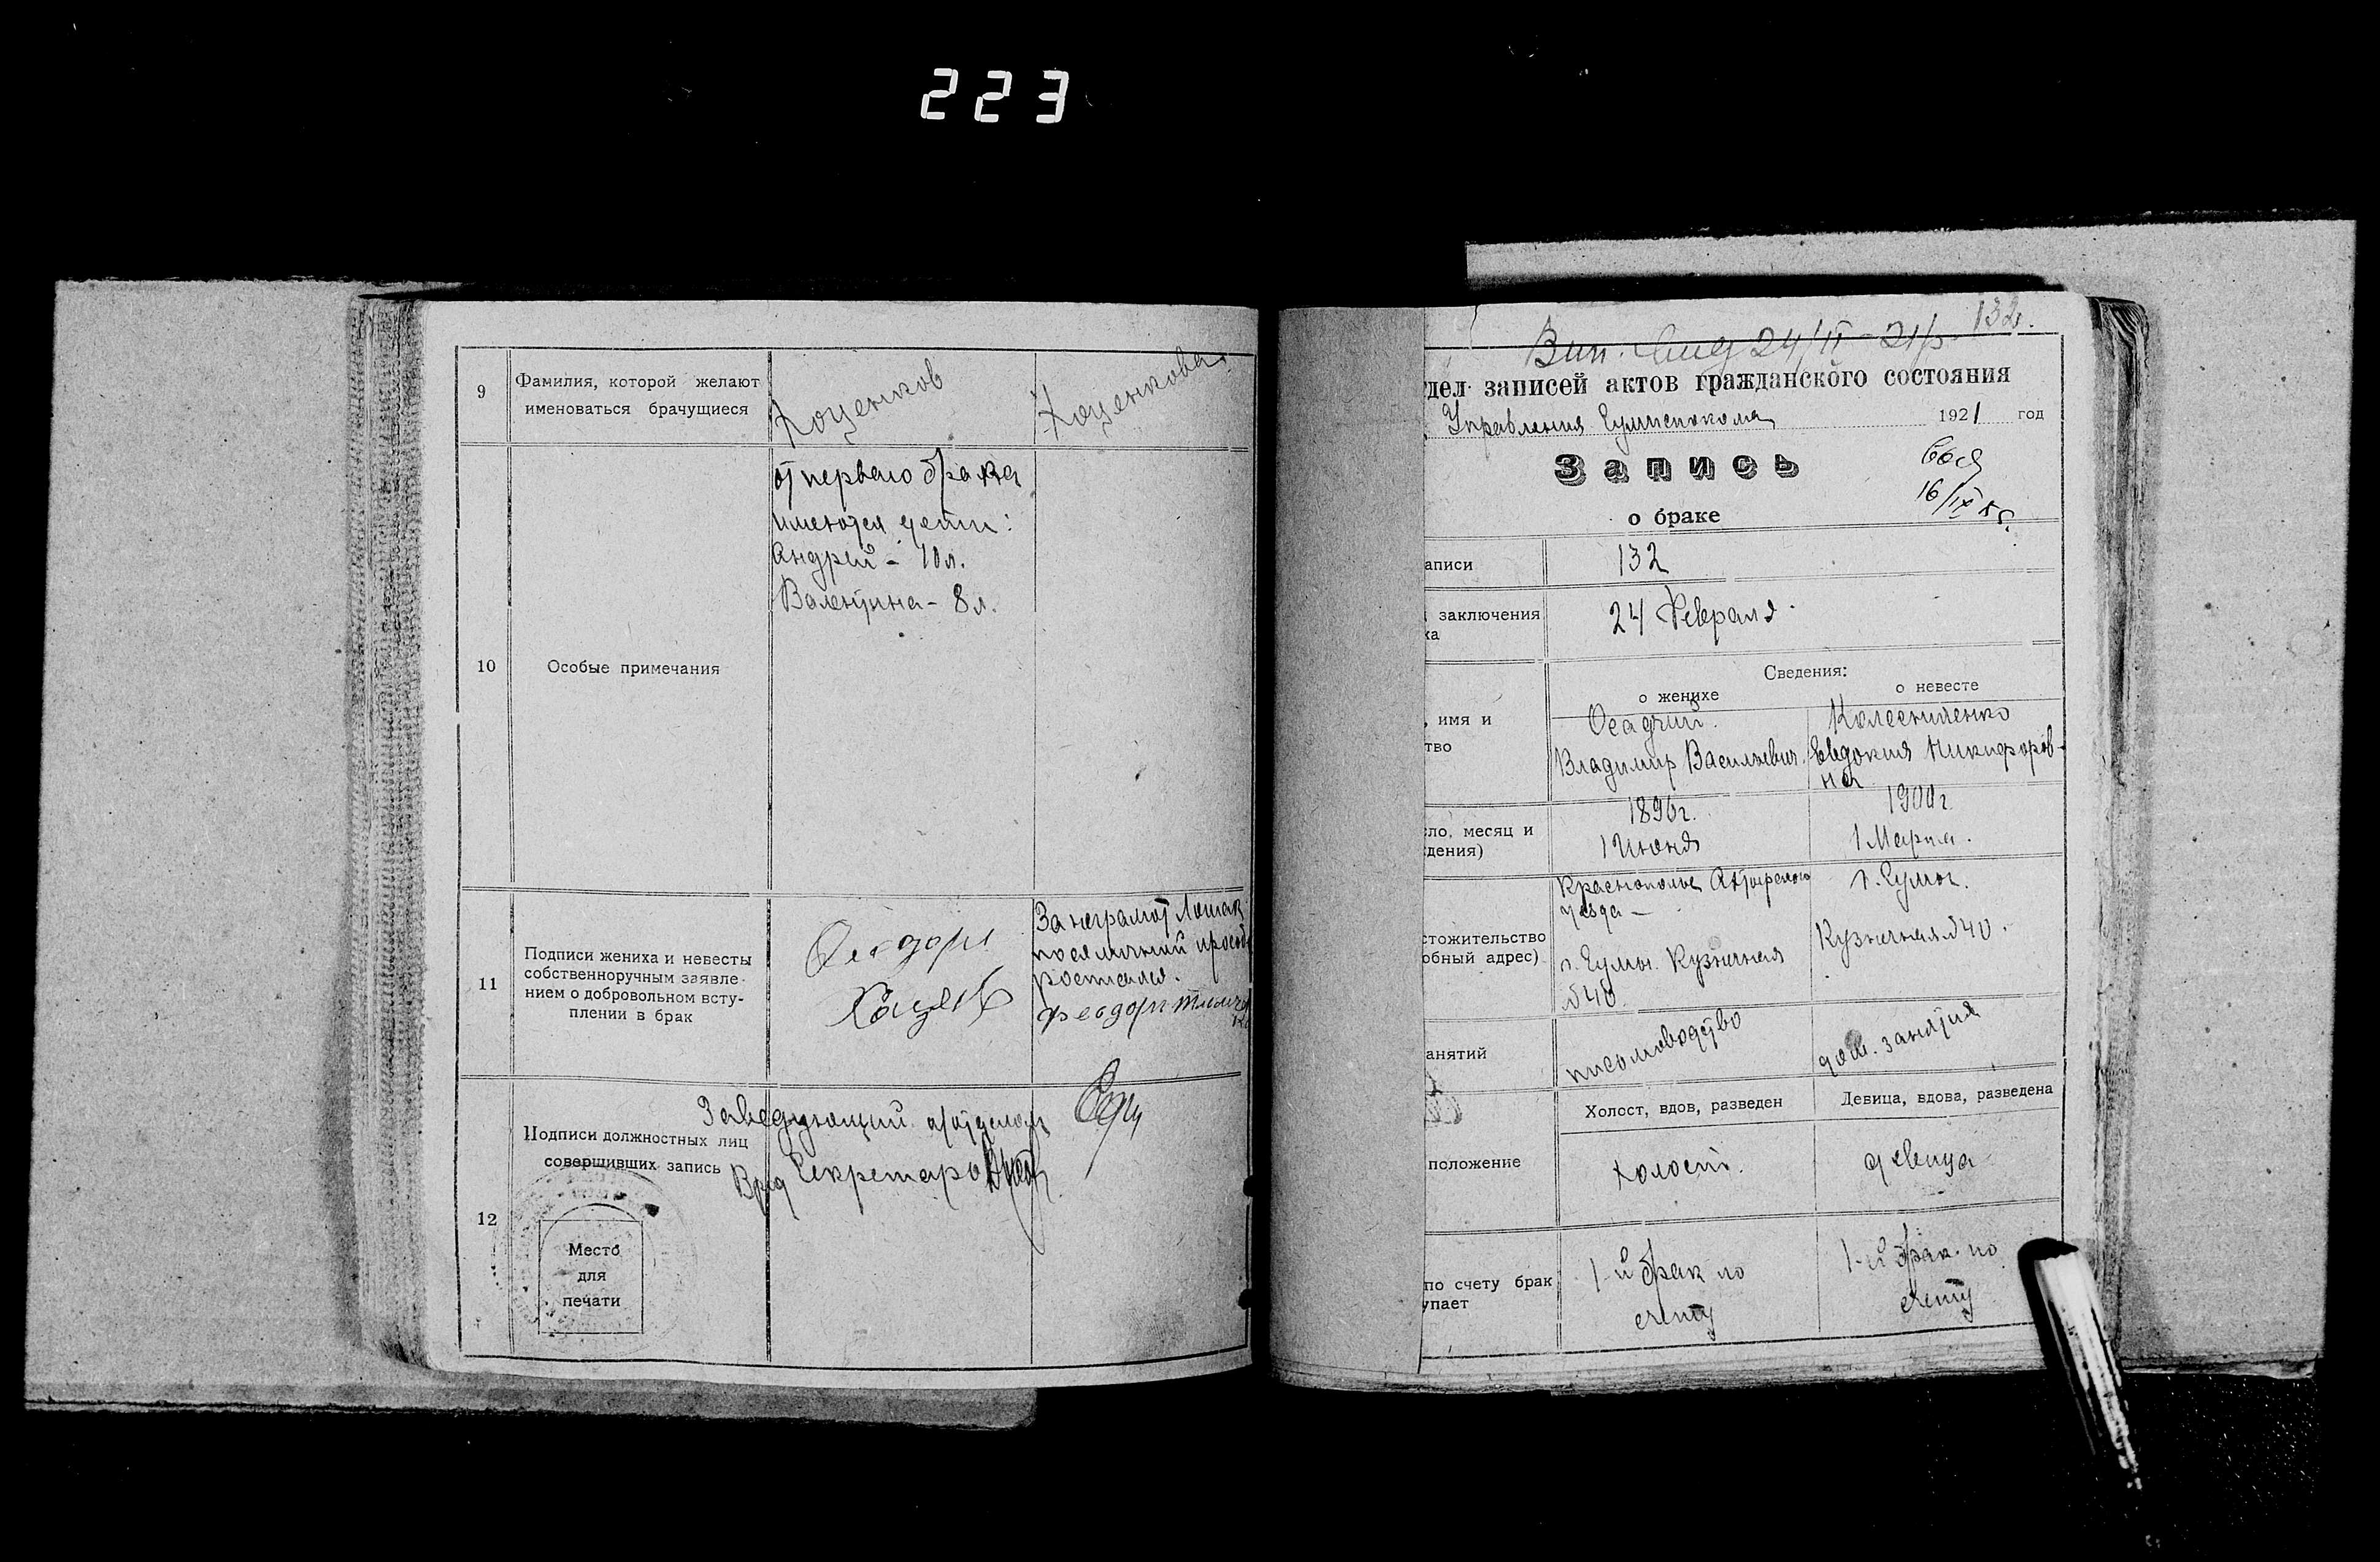 223
9
Фамилия, которой желают
именоваться брачущиеся
Коценков
Коценкова.
10
Особые примечания
от первого брака
имеются дети:
Андрей – 10 л.
Валентина – 8 л.
11
Подписи жениха и невесты
собственноручным заявле-
нием о добровольном всту-
плении в брак
За неграмот
по ея личной просьб
Заведующий п/отделом
Подписи должностных лиц
совершивших запись
Врид Секретаро
12
Место
для
печати
132.
24/II – 21
дел записей актов гражданского состояния
Управления 1921 год
Запись
о браке
16/IX
аписи
132
заключения
ка
24 Февраля.
Сведения:
о женихе
о невесте
, имя и
тво
Осадчий.
Владимир Васильевич.
Колесниченко
Евдокия Никифоров-
на
ло, месяц и
дения)
1896г.
1 Июня
1900г.
1 Марта.
стожительство
обный адрес)
Краснополье Ахтырского
уезда –
г. Сумы. Кузнечная
№40.
г. Сумы.
Кузнечная №40.
анятий
письмоводство
дом. занятия
Холост, вдов, разведен
Девица, вдова, разведена
положение
холост.
девица
по счету брак
упает
1-й брак по
счету
1-й брак по
счету